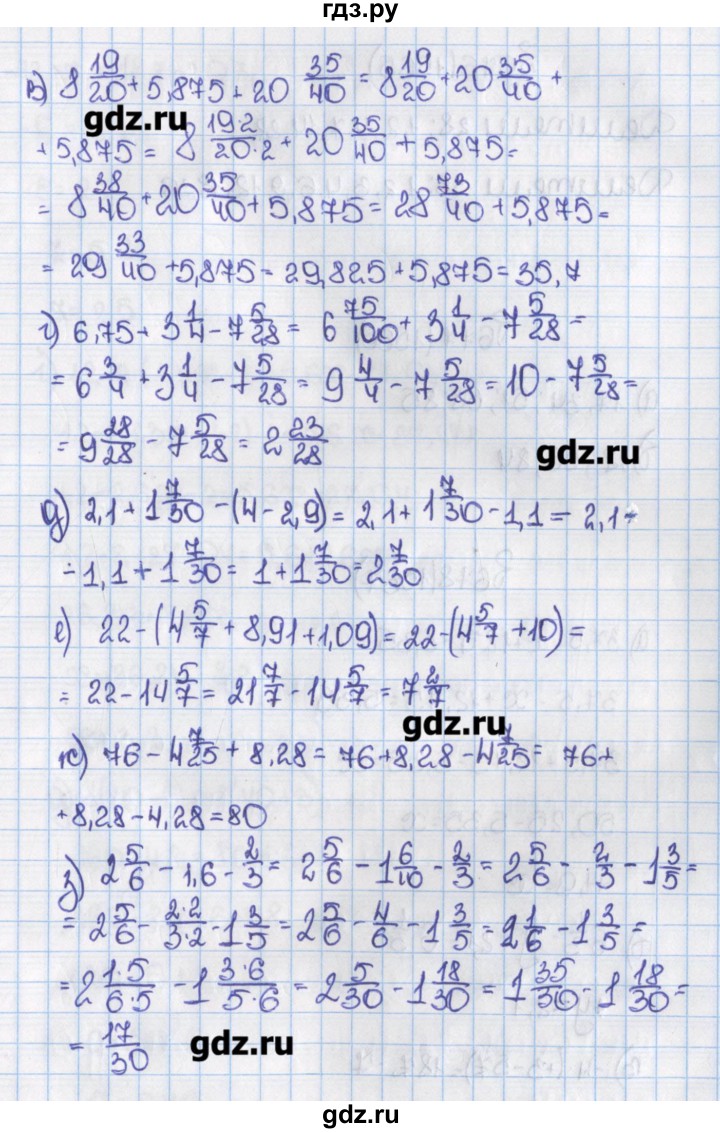 гдз.ру
в) 8 19/20 + 5,875 + 20 35/40 = 8 19/20 + 20 35/40 +
gdz.ru
+ 5,875 = 8 19·2/20·2 + 20 35/40 + 5,875 =
= 8 38/40 + 20 35/40 + 5,875 = 28 73/40 + 5,875 =
= 29 33/40 + 5,875 = 29,825 + 5,875 = 35,7
г) 6,75 + 3 1/4 - 7 5/28 = 6 75/100 + 3 1/4 - 7 5/28 =
= 6 3/4 + 3 1/4 - 7 5/28 = 9 4/4 - 7 5/28 = 10 - 7 5/28 =
= 9 28/28 - 7 5/28 = 2 23/28
gdz.ru
д) 2,1 + 1 7/30 - (4 - 2,9) = 2,1 + 1 7/30 - 1,1 = 2,1 -
- 1,1 + 1 7/30 = 1 + 1 7/30 = 2 7/30
е) 22 - (4 5/7 + 8,91 + 1,09) = 22 - (4 5/7 + 10) =
= 22 - 14 5/7 = 21 7/7 - 14 5/7 = 7 2/7
gdz.ru
ж) 76 - 4 7/25 + 8,28 = 76 + 8,28 - 4 7/25 = 76 +
+ 8,28 - 4,28 = 80
з) 2 5/6 - 1,6 - 2/3 = 2 5/6 - 1 6/10 - 2/3 = 2 5/6 - 2/3 - 1 3/5 =
= 2 5/6 - 2·2/3·2 - 1 3/5 = 2 5/6 - 4/6 - 1 3/5 = 2 1/6 - 1 3/5 =
= 2 1·5/6·5 - 1 3·6/5·6 = 2 5/30 - 1 18/30 = 1 35/30 - 1 18/30 =
= 17/30
gdz.ru
gdz.ru